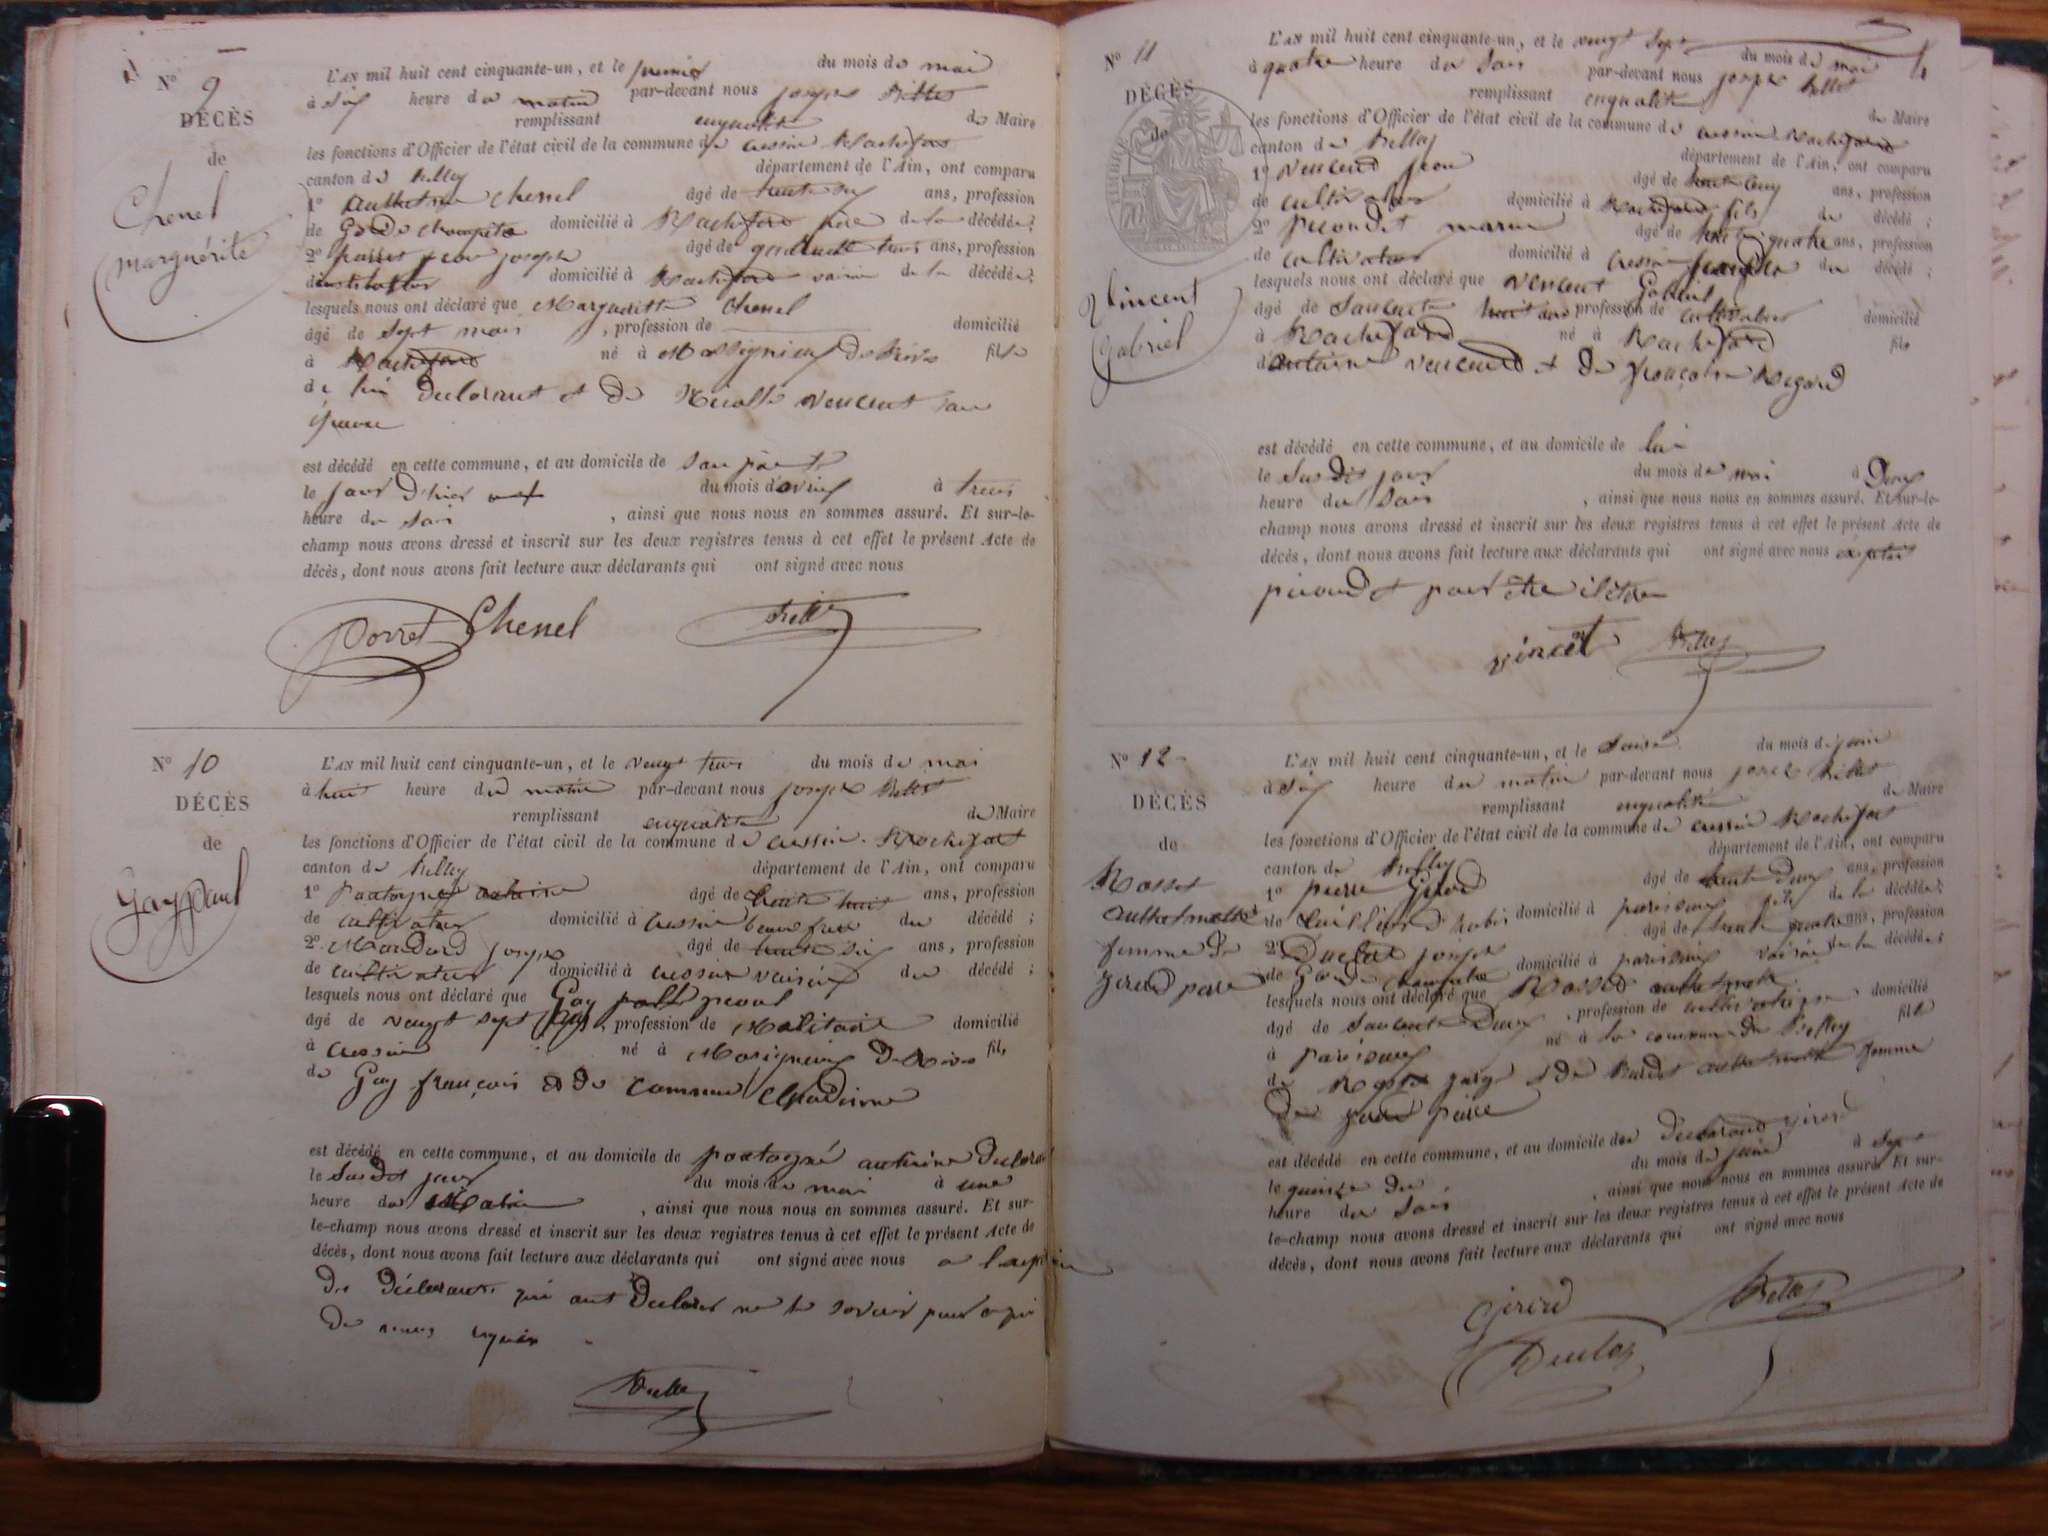 N° 9
DÉCÈS
de
Chenel
marguérite
L'AN mil huit cent cinquante-un, et le premier du mois de mai
à six heure du matin par-devant nous joseph Billet
remplissant enqualité de Maire
les fonctions d'Officier de l'état civil de la commune de cressin Rochefort
canton de Belley département de l'Ain, ont comparu
1° anthelme Chenel âgé de trente six ans, profession
de Garde champêtre domicilié à Rochefort père de la décédée;
2° porret jean joseph âgé de quarante trois ans, profession
domicilié à Rochefort voisin de la décédée;
lesquels nous ont déclaré que Margueritte Chenel
âgé de sept mois , profession de domicilié
à Rochefort né à Massignieu de Rives fille
de lui declarant et de vencent sans
est décédé en cette commune, et au domicile de son père
le jour d'hier du mois d'avril à trois
heure du soir , ainsi que nous nous en sommes assuré. Et sur-le-
champ nous avons dressé et inscrit sur les deux registres tenus à cet effet le présent Acte de
décès, dont nous avons fait lecture aux déclarants qui ont signé avec nous
porret Chenel Billet
N° 10
DÉCÈS
de
Gay paul
L'AN mil huit cent cinquante-un, et le vengt trois du mois de mai
à huit heure du matin par-devant nous joseph Billet
remplissant enqualité de Maire
les fonctions d'Officier de l'état civil de la commune de cressin Rochefort
canton de Belley département de l'Ain, ont comparu
1° antoine âgé de trente huit ans, profession
de cultivateur domicilié à cressin beau frère du décédé;
2° joseph âgé de trente six ans, profession
de cultivateur domicilié à cressin voisin du décédé;
lesquels nous ont déclaré que Gay
âgé de vengt sept ans, profession de Militaire domicilié
à cressin né à Masignieu de Rives fils
de Gay françois et de
est décédé en cette commune, et au domicile de portagné antoine
le susdit jour du mois de mai à une
heure du matin , ainsi que nous nous en sommes assuré. Et sur-
le-champ nous avons dressé et inscrit sur les deux registres tenus à cet effet le présent Acte de
décès, dont nous avons fait lecture aux déclarants qui ont signé avec nous
de déclarants qui ont declarer ne le savoir
de nous
Billet
N° 11
DÉCÈS
de
Vincent
Gabriel
L'AN mil huit cent cinquante-un, et le vengt sept du mois de mai
à quatre heure du soir par-devant nous joseph Billet
remplissant enqualité de Maire
les fonctions d'Officier de l'état civil de la commune de cressin Rochefort
canton de Belley département de l'Ain, ont comparu
1° Vencend jean âgé de ans, profession
de cultivateur domicilié à Rochefort fils du décédé;
2° picondet marin âgé de ans, profession
de cultivateur domicilié à cressin du décédé;
lesquels nous ont déclaré que vencent Gabriel
âgé de soixante huit ans profession de cultivateur domicilié
à Rocheford né à Rocheford fils
d'antoine vencend et de françoise Regard
est décédé en cette commune, et au domicile de lui
le susdit jour du mois de mai à deux
heure du soir , ainsi que nous nous en sommes assuré. Et sur-le-
champ nous avons dressé et inscrit sur les deux registres tenus à cet effet le présent Acte de
décès, dont nous avons fait lecture aux déclarants qui ont signé avec nous excepter
picondet pour être
vincet Billet
N° 12
DÉCÈS
de
Rosset
femme de
Girerd pierre
L'AN mil huit cent cinquante-un, et le seize du mois de juin
à six heure du matin par-devant nous Billet
remplissant enqualité de Maire
les fonctions d'Officier de l'état civil de la commune de cressin Rochefort
canton de Belley département de l'Ain, ont comparu
1° pierre Girerd âgé de trente deux ans, profession
de tailleur d'habis domicilié à parissieux fils de la décédée;
2° joseph âgé de trente quatre ans, profession
de Garde champêtre domicilié à parissieux voisin de la décédée;
lesquels nous ont déclaré que Rosset
âgé de soixante deux , profession de cultivatrice domicilié
à parissieux né à la commune de Belley fille
de et de femme
de pierre
est décédé en cette commune, et au domicile du declarand girerd
le quinze du du mois de juin à sept
heure du soir , ainsi que nous nous en sommes assuré. Et sur-
le-champ nous avons dressé et inscrit sur les deux registres tenus à cet effet le présent Acte de
décès, dont nous avons fait lecture aux déclarants qui ont signé avec nous
Girerd Billet
Duclos